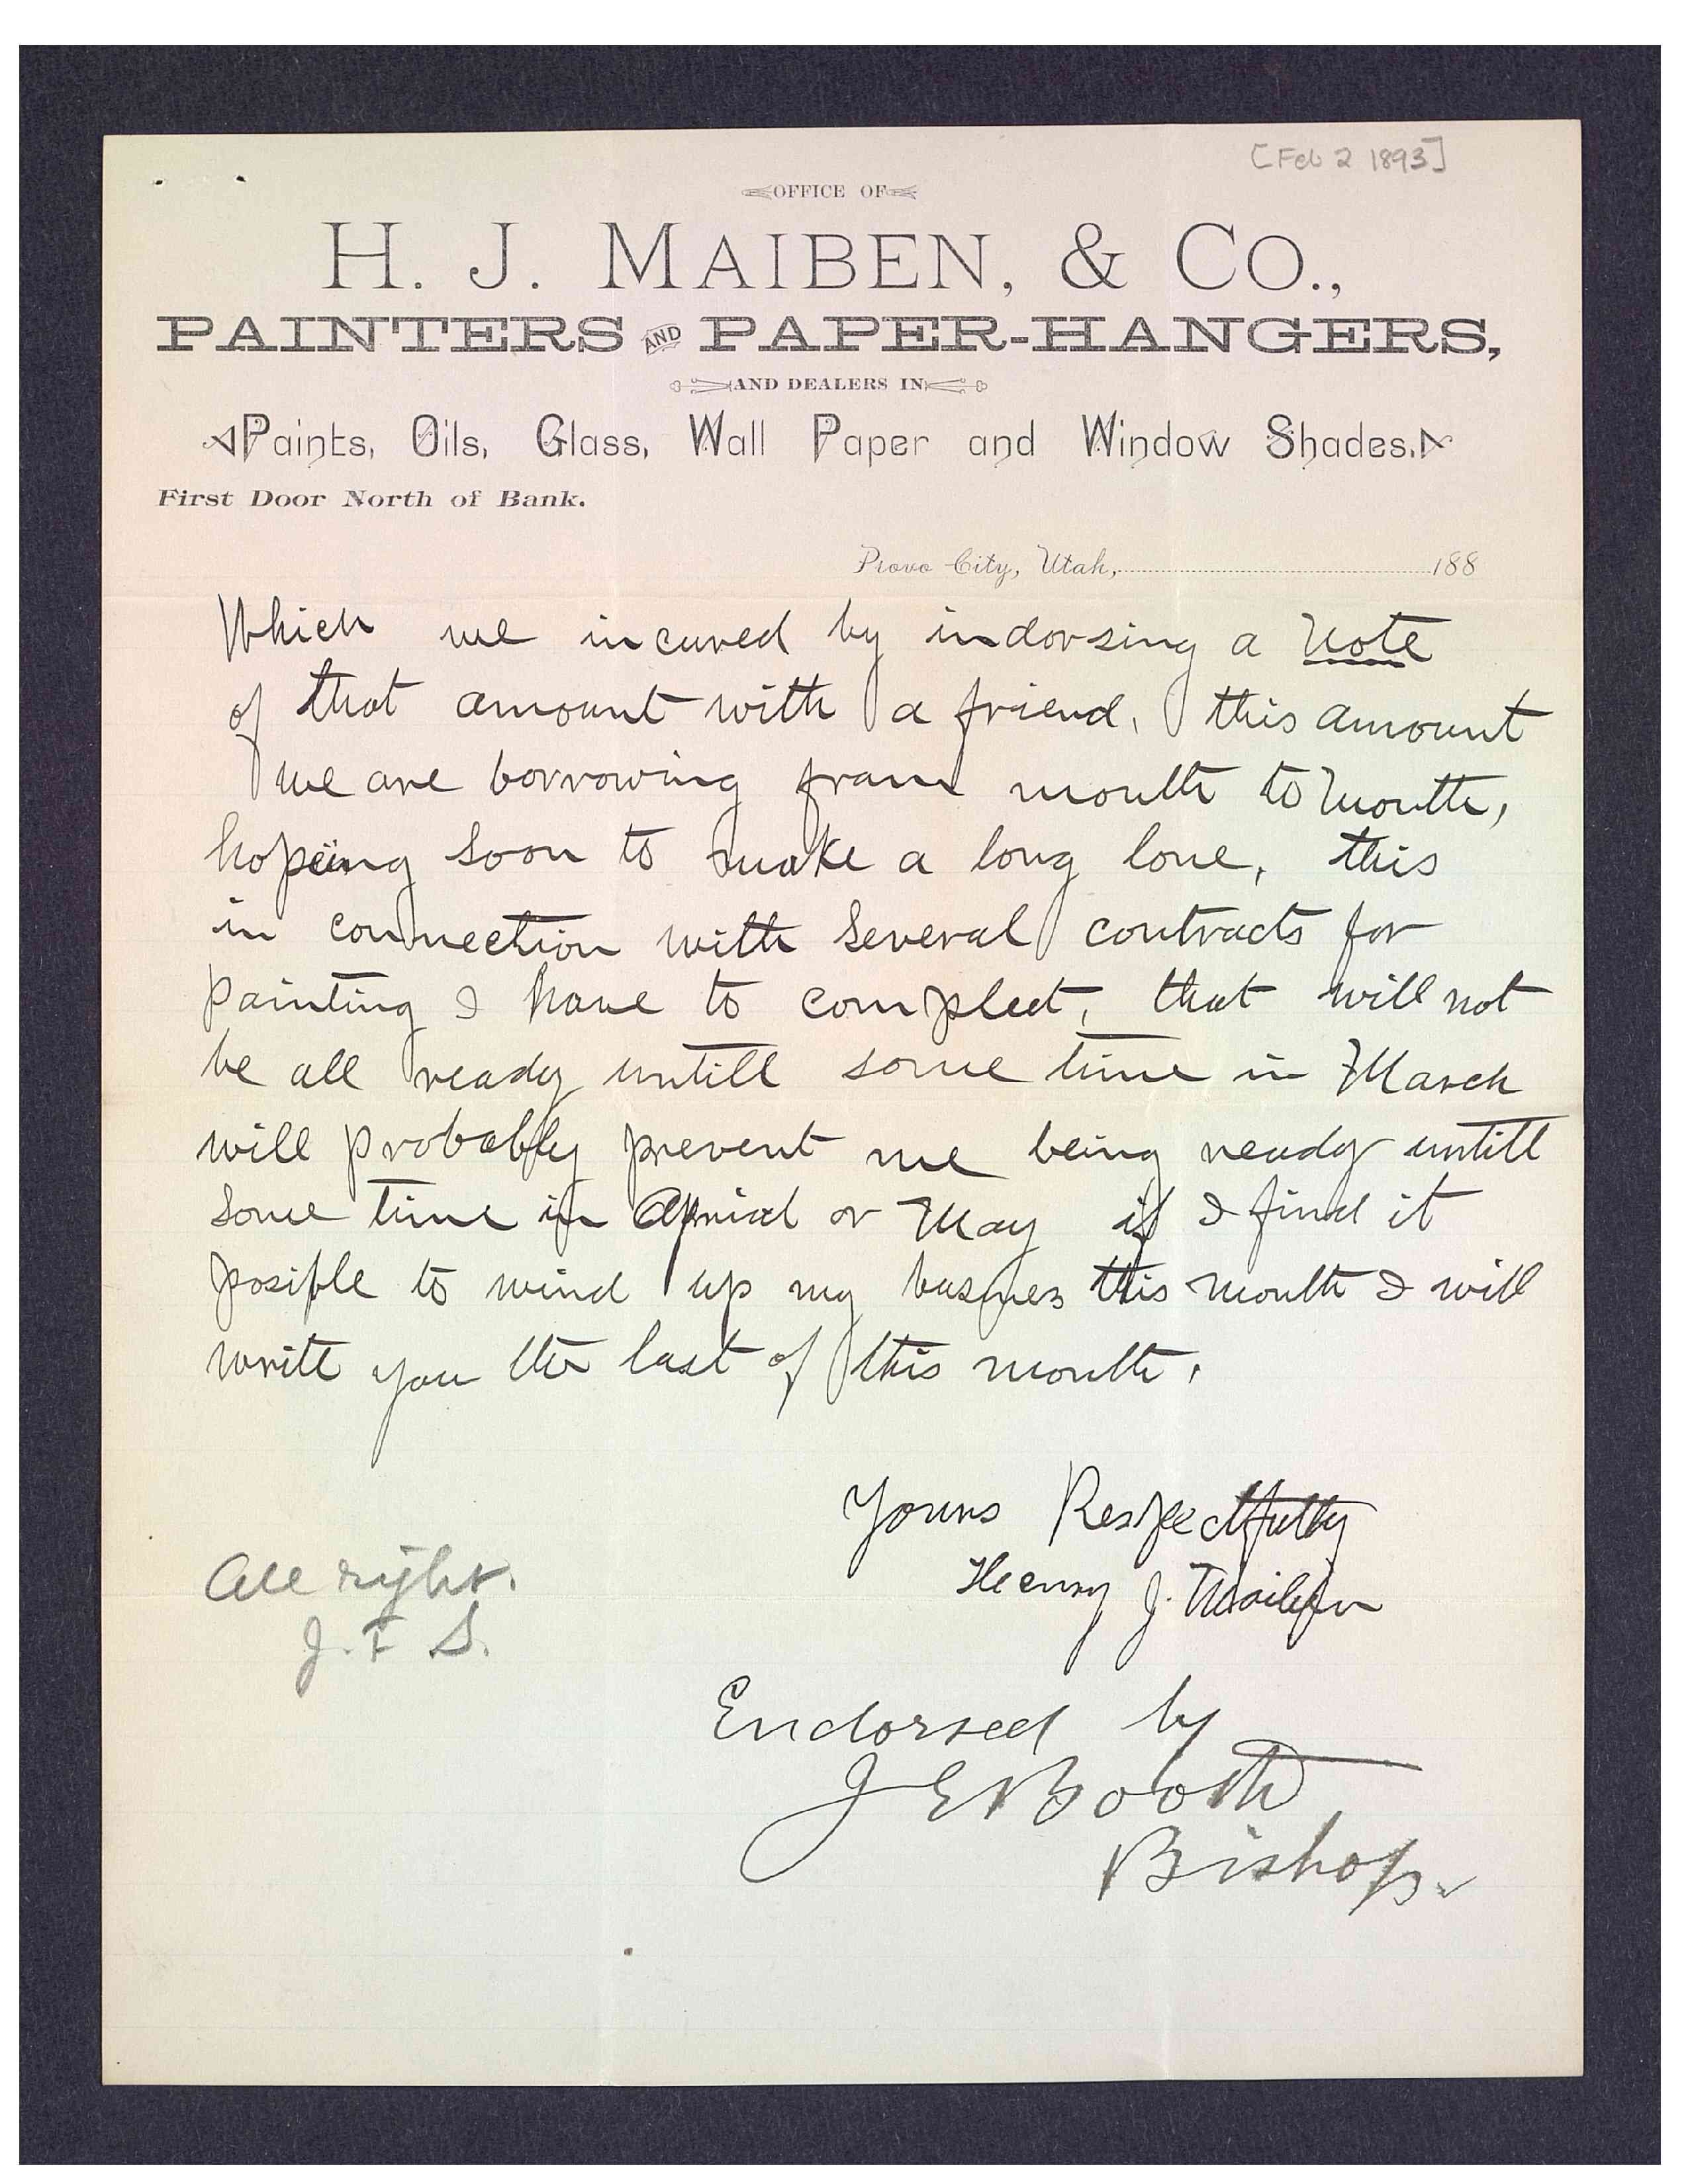 [Feb 2 1893]
OFFICE OF
H. J. MAIBEN, & CO.,
PAINTERS AND PAPER-HANGERS,
AND DEALERS IN
Paints, Oils, Glass, Wall Paper and Window Shades.
First Door North of Bank.
Provo City, Utah, 188
Which we incured by indorsing a Note
of that amount with a friend, this amount
we are borrowing from month to Month,
hopeing soon to make a long lone, this
in connection with Several contracts for
painting I have to complect, that will not
be all ready untill some time in March
will probably prevent me being ready untill
Some time in Apriel or May if I find it
posible to wind up my busines this month I will
write you the last of this month.
Yours Respectfully
Henry J. Maiben
All right.
J. F. S.
Endorsed by
J E Booth
Bishop.